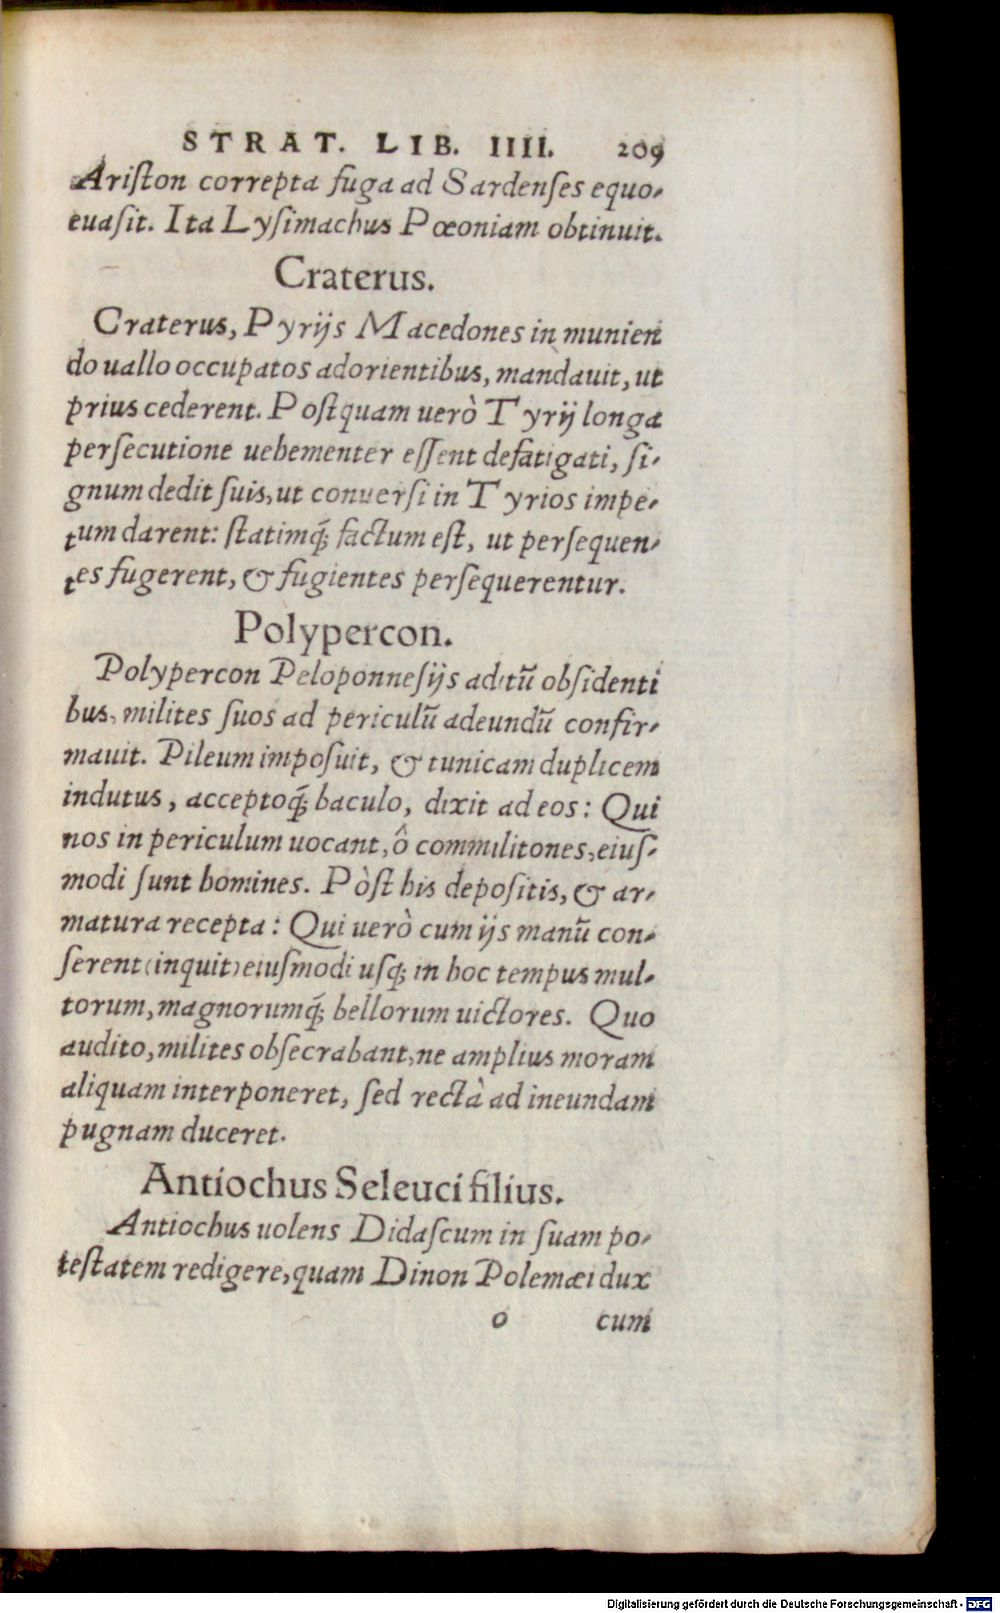 STRAT. LIB. IIII. 209
Ariſton correpta fuga ad Sardenſes equo-
euaſit. Ita Lyſimachus Pœoniam obtinuit.
Craterus.
Craterus, Pyrijs Macedones in munien
do uallo occupatos adorientibus, mandauit, ut
prius cederent. Poſtquam uerò Tyrij longa
perſecutione uehementer eſſent defatigati, ſi-
gnum dedit ſuis, ut conuerſi in Tyrios impe-
tum darent: ſtatimq́; factum eſt, ut perſequen-
tes fugerent, & fugientes perſequerentur.
Polypercon.
Polypercon Peloponneſijs aditū obſidenti
bus, milites ſuos ad periculū adeundū confir-
mauit. Pileum impoſuit, & tunicam duplicem
indutus, acceptoq́; baculo, dixit ad eos: Qui
nos in periculum uocant, ô commilitones, eiuſ-
modi ſunt homines. Pòſt his depoſitis, & ar-
matura recepta: Qui uerò cum ijs manū con-
ſerent (inquit) eiuſmodi uſq; in hoc tempus mul-
torum, magnorumq́; bellorum uictores. Quo
audito, milites obſecrabant, ne amplius moram
aliquam interponeret, ſed rectà ad ineundam
pugnam duceret.
Antiochus Seleuci filius.
Antiochus uolens Didaſcum in ſuam po-
teſtatem redigere, quam Dinon Polemæi dux
o cum
Digitalisierung gefördert durch die Deutsche Forschungsgemeinschaft - DFG